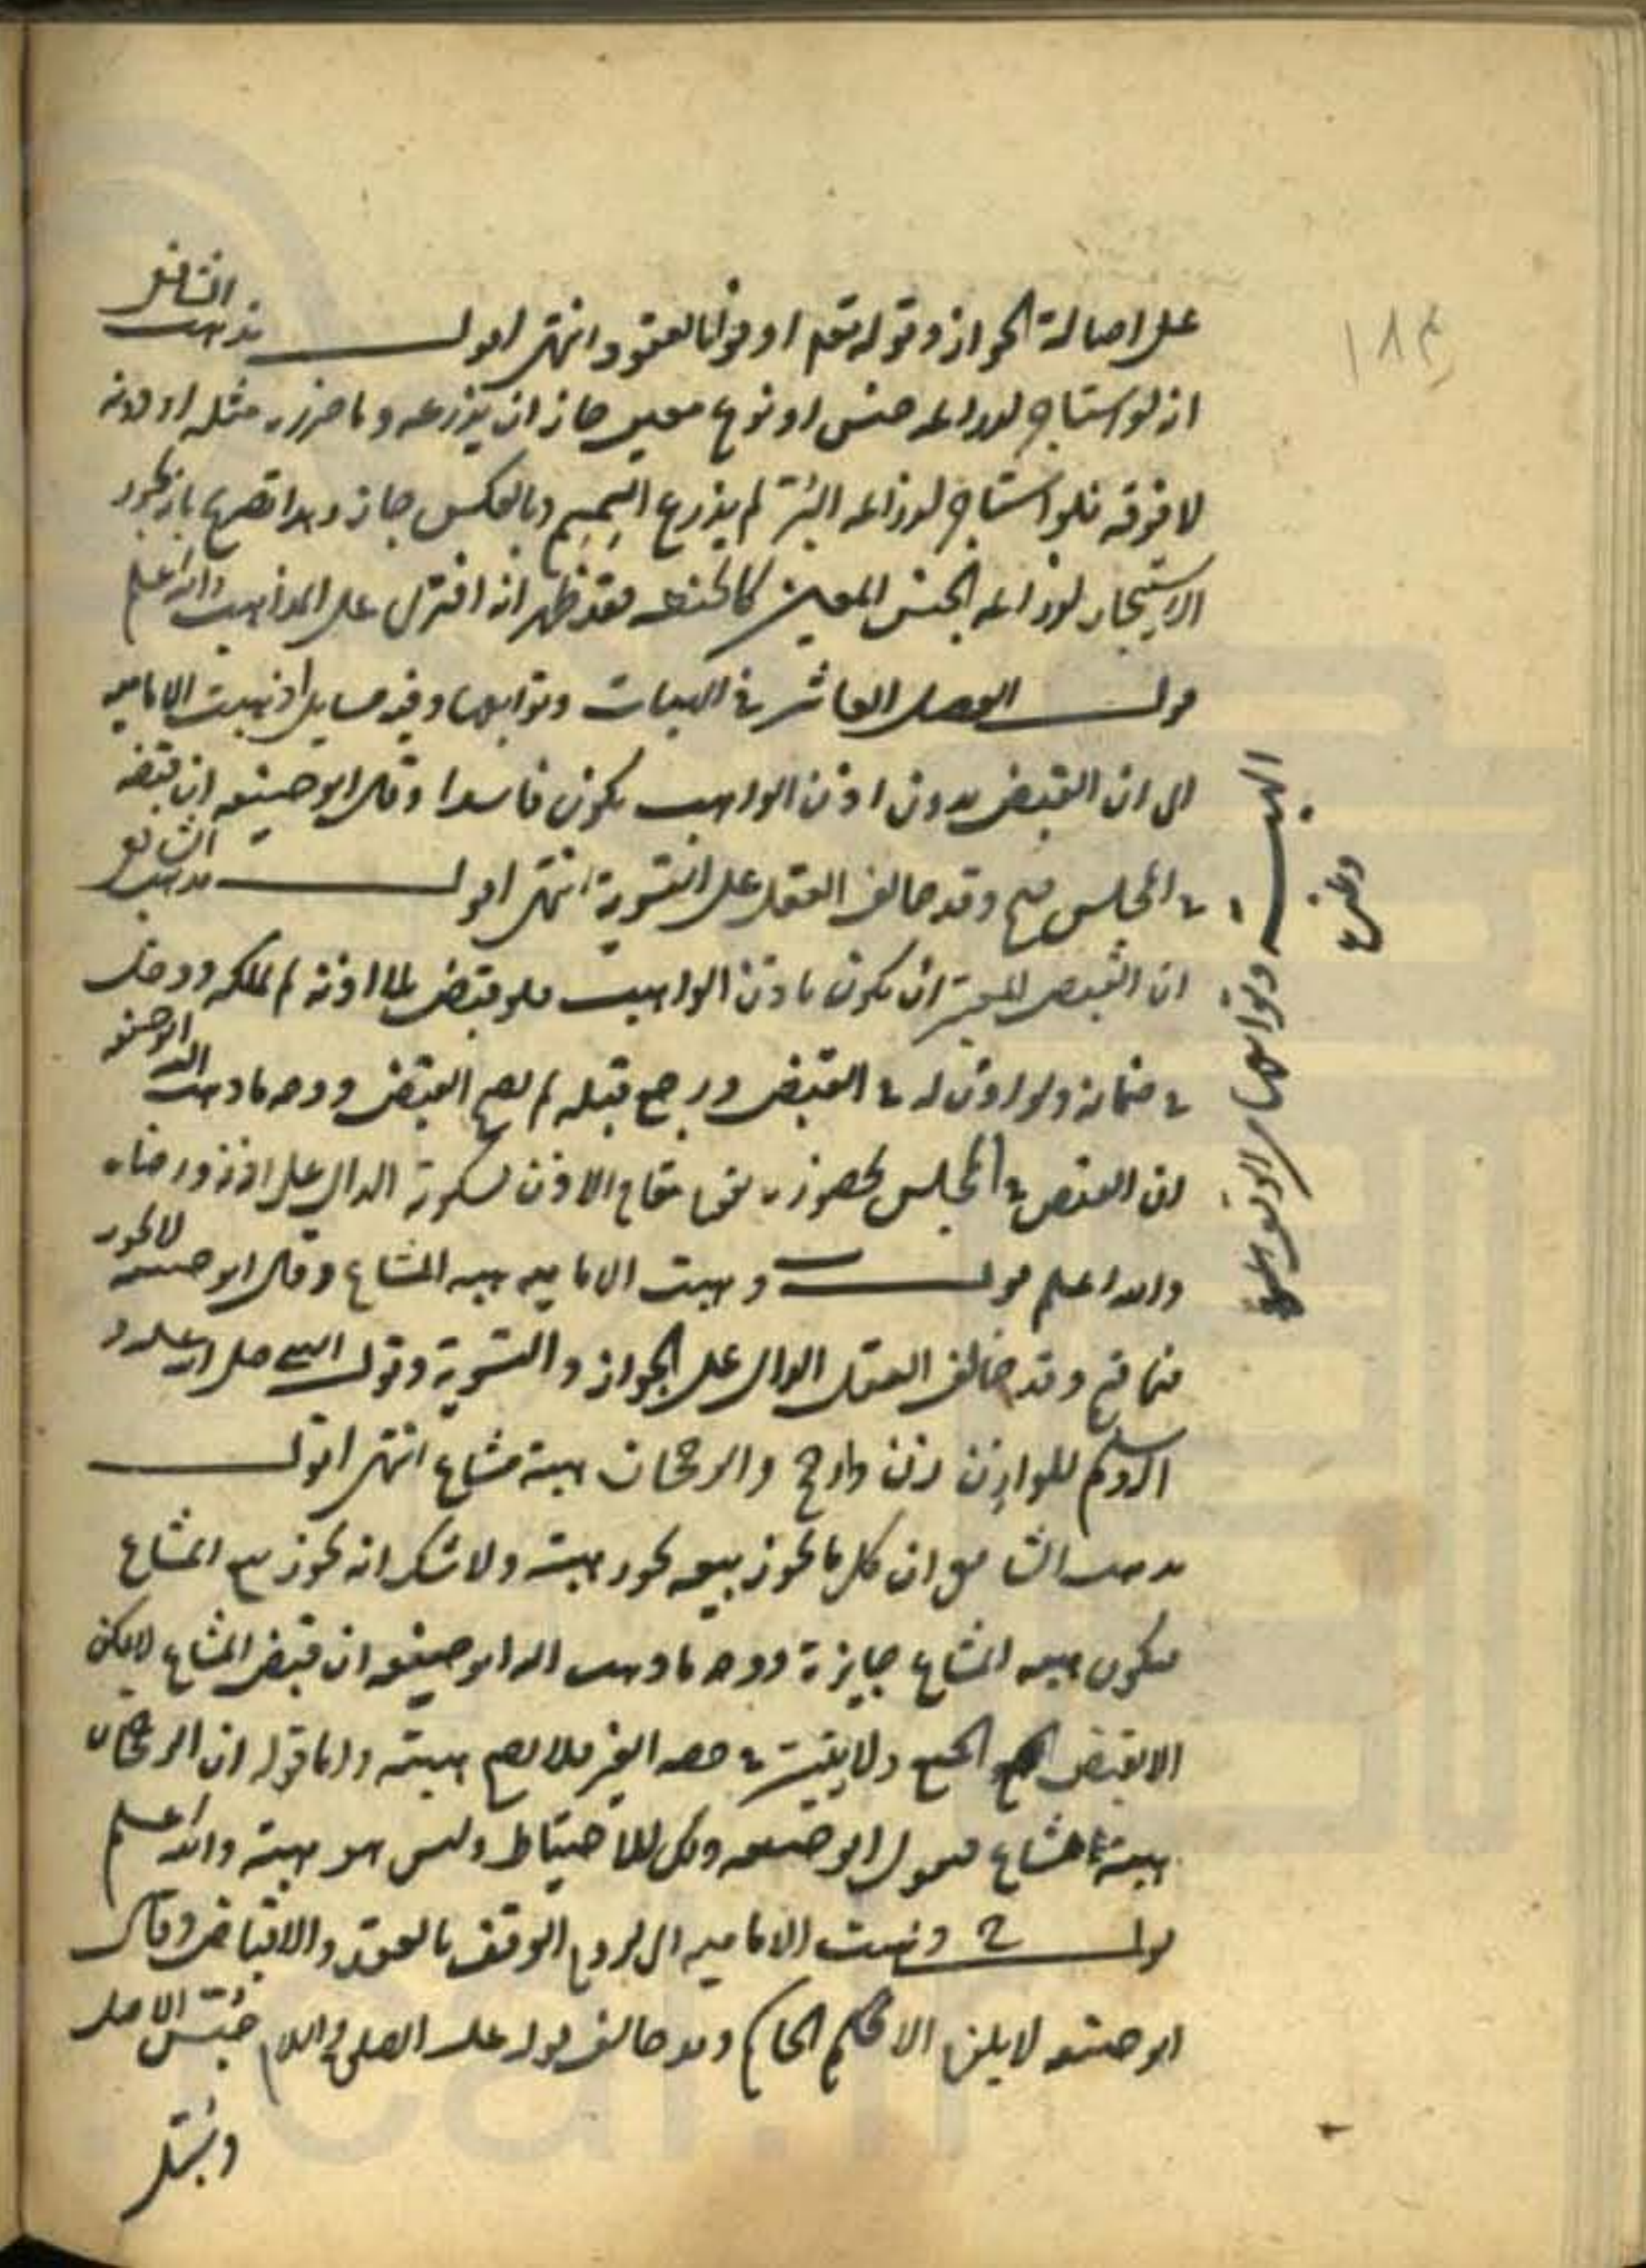 ١٨٤
على اصالة الجواز وقوله تعم اوفوا بالعقود انتهى اقول مذهب الشافعي
انه لو استاجر لزراعة جنس او نوع معين جاز ان يزرعه وما ضرره مثله او دونه
لا فوقه فلو استاجر لزراعة البر لم يزرع وبالعكس جاز وهذا تصريح بانه يجوز
الاستيجار لزراعة الجنس المعين كالحنطة فقد ظهر انه افترى على المذاهب والله اعلم
قوله الفصل العاشر في الهبات وتوابعها وفيه مسايل ا ذهبت الامامية
الى ان القبض بدون اذن الواهب يكون فاسدا وقال ابو حنيفه ان قبضه
في المجلس صح وقد خالف العقل على التسوية انتهى اقول مذهب الشافعي
ان القبض المعتبر ان يكون باذن الواهب فلو قبض بلا اذنه لم يملكه ودخل
في ضمانه ولو اذن له في القبض ورجع قبله لم يصح القبض ووجه ما ذهب اليه ابو حنيفه
ان القبض في المجلس بحضوره يقع مقام الاذن لسكوته الدال على اذنه ورضاه
والله اعلم قوله ب ذهبت الامامية هبه المشاع وقال ابو حنيفه لا يجوز
وقد خالف العقل الدال على الجواز والتسوية وقول النبي صلى الله عليه و
اله وسلم للوازن زن وارجح والرجحان هبة مشاع انتهى اقول
مذهب الشافعي ان كل ما يجوز بيعه يجوز هبته ولا شك انه يجوز بيع المشاع
فيكون هبه المشاع جايزة ووجه ما ذهب اليه ابو حنيفه ان قبض المشاع لا يمكن
الا بقبض الجميع ولا يثبت في حصه الغير فلا يصح هبته واما قوله ان الرجحان
هبة مشاع فيقول ابو حنيفه ذلك للاحتياط وليس هو هبة والله اعلم
قوله ج ذهبت الامامية الى لزوم الوقف بالعقد والاقباض وقال
ابو حنيفه لا يلزم الا بحكم الحاكم وقد خالف قوله عليه الصلوة والسلام حبس الاصل
وسبل
الهبة وتوابعها